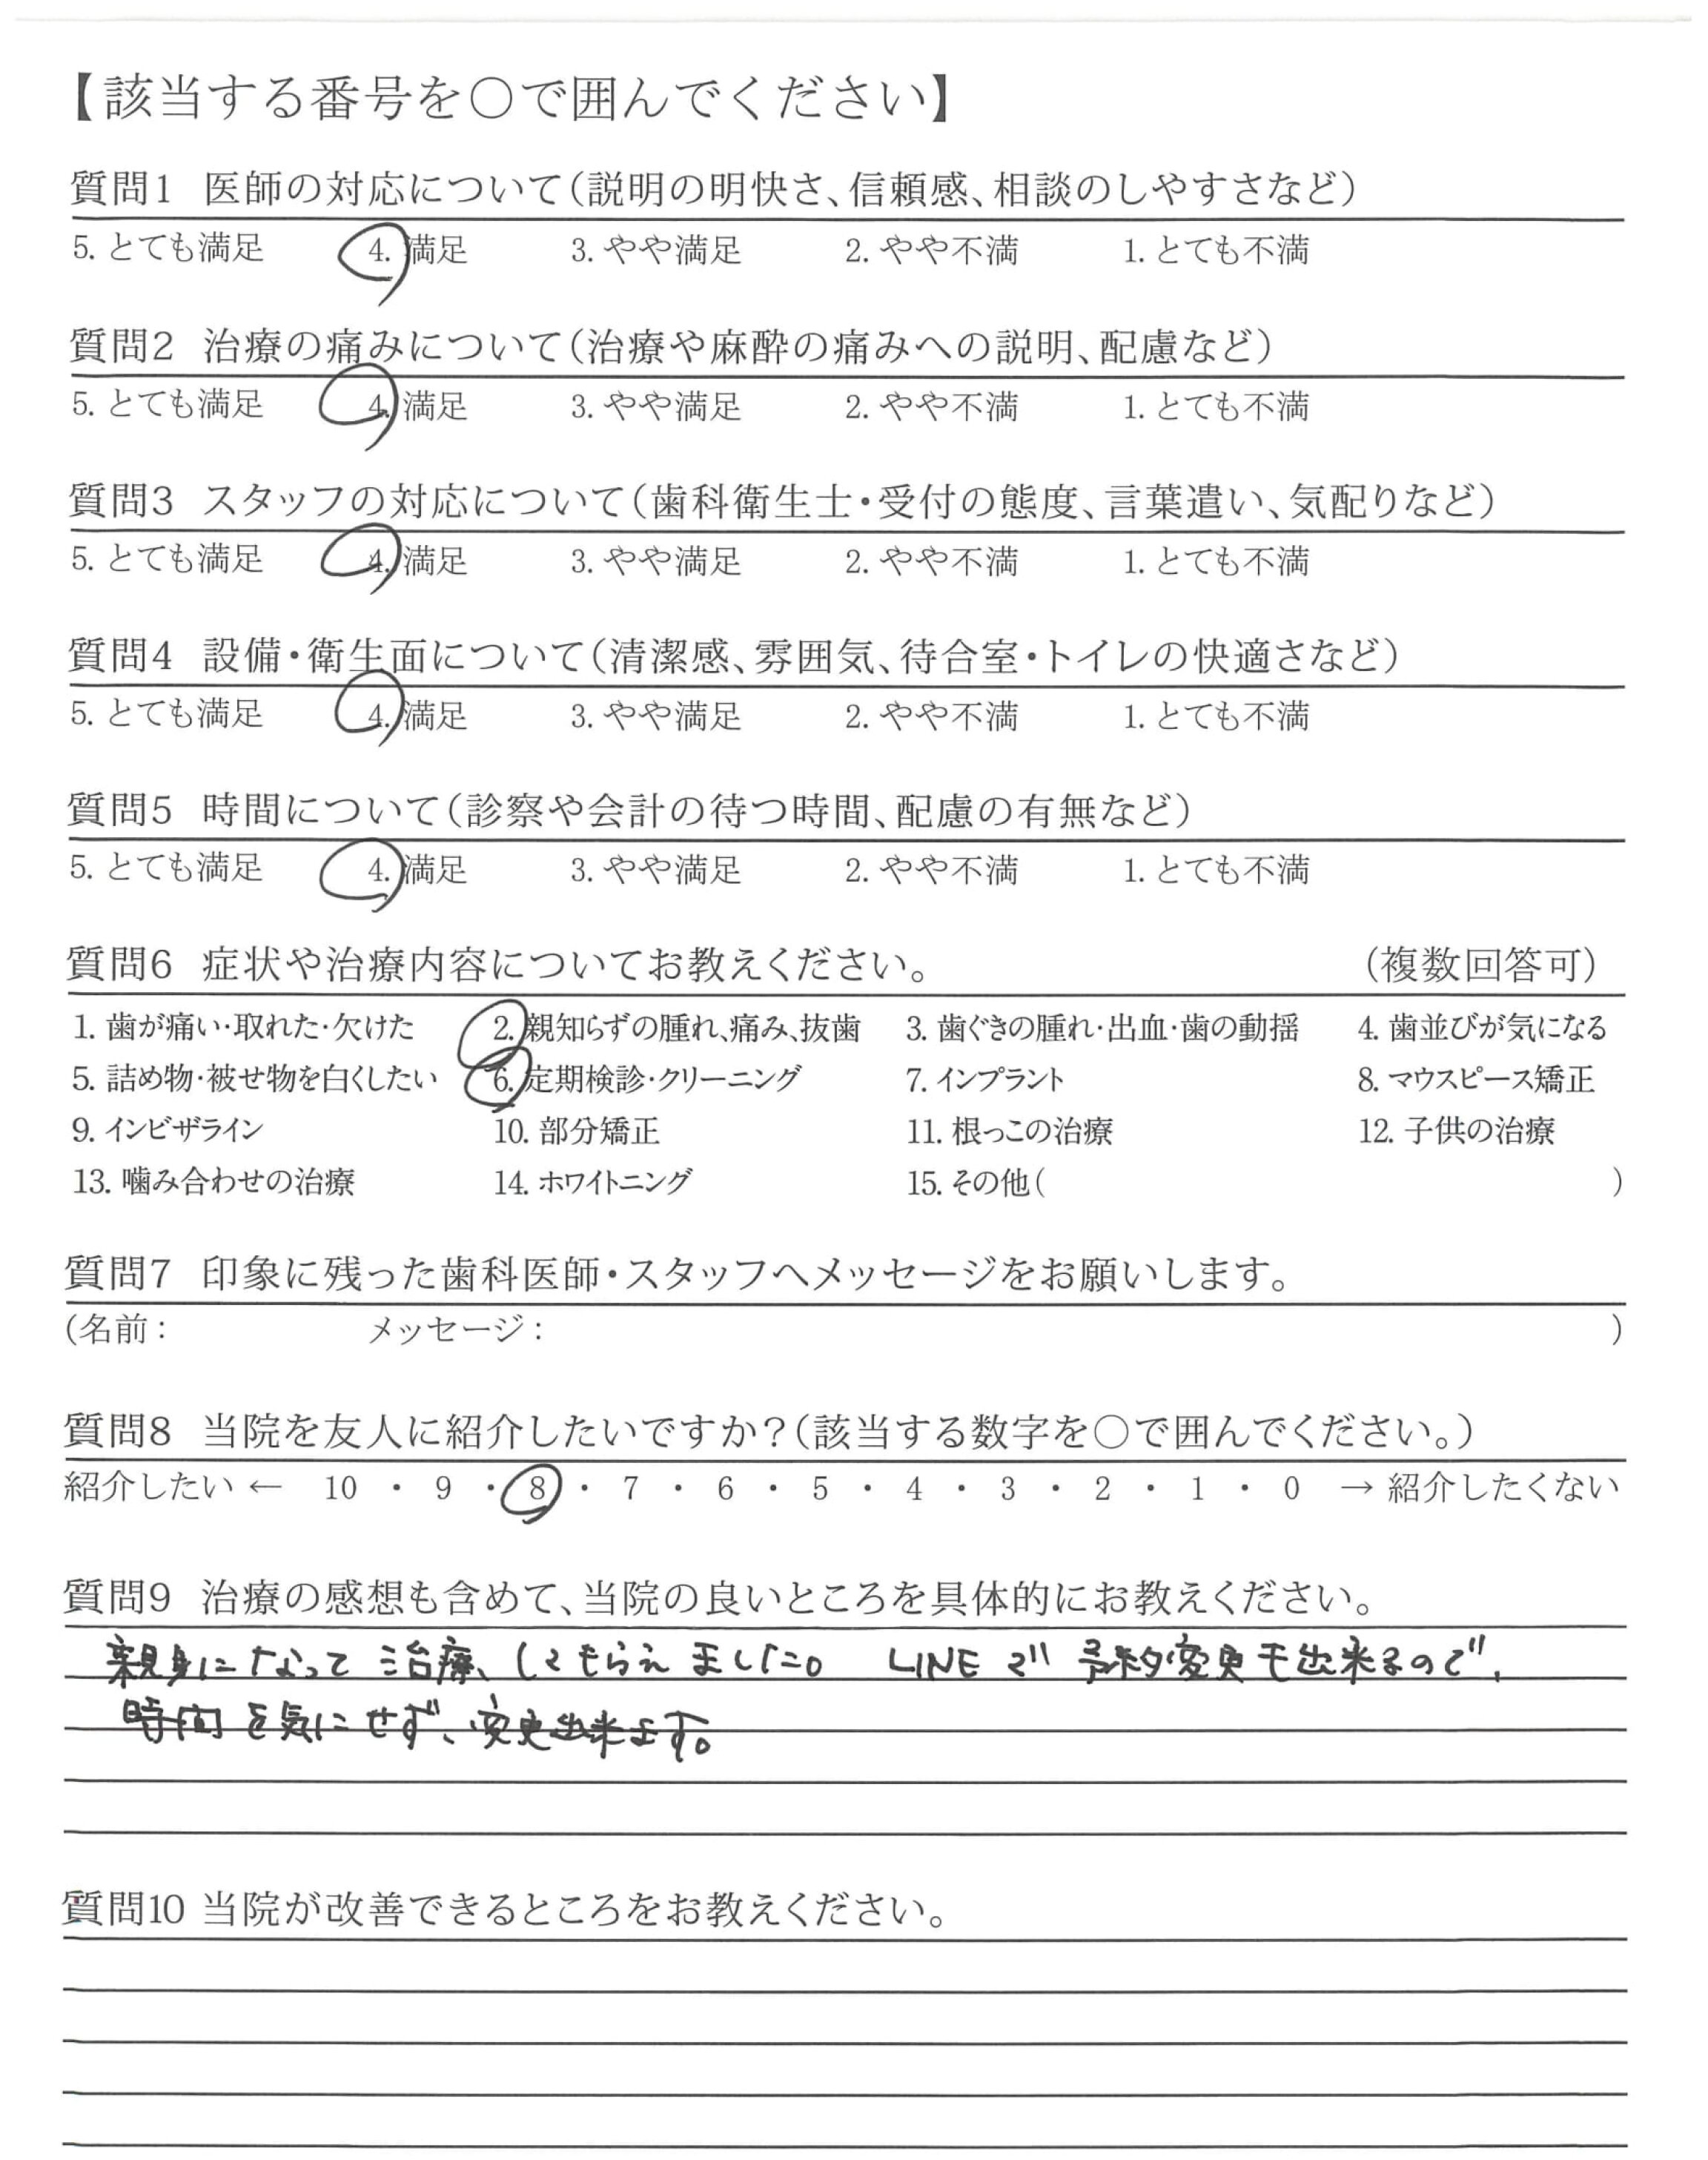 【該当する番号を○で囲んでください】
質問1 医師の対応について(説明の明快さ、信頼感、相談のしやすさなど)
5. とても満足 4. 満足 3. やや満足 2. やや不満 1. とても不満
質問2 治療の痛みについて(治療や麻酔の痛みへの説明、配慮など)
5. とても満足 4. 満足 3. やや満足 2. やや不満 1. とても不満
質問3 スタッフの対応について(歯科衛生士・受付の態度、言葉遣い、気配りなど)
5. とても満足 4. 満足 3. やや満足 2. やや不満 1. とても不満
質問4 設備・衛生面について(清潔感、雰囲気、待合室・トイレの快適さなど)
5. とても満足 4. 満足 3. やや満足 2. やや不満 1. とても不満
質問5 時間について(診察や会計の待つ時間、配慮の有無など)
5. とても満足 4. 満足 3. やや満足 2. やや不満 1. とても不満
質問6 症状や治療内容についてお教えください。 (複数回答可)
1. 歯が痛い・取れた・欠けた 2. 親知らずの腫れ、痛み、抜歯 3. 歯ぐきの腫れ・出血・歯の動揺 4. 歯並びが気になる
5. 詰め物・被せ物を白くしたい 6. 定期検診・クリーニング 7. インプラント 8. マウスピース矯正
9. インビザライン 10. 部分矯正 11. 根っこの治療 12. 子供の治療
13. 噛み合わせの治療 14. ホワイトニング 15. その他( )
質問7 印象に残った歯科医師・スタッフへメッセージをお願いします。
(名前: メッセージ: )
質問8 当院を友人に紹介したいですか?(該当する数字を○で囲んでください。)
紹介したい ← 10 ・ 9 ・ 8 ・ 7 ・ 6 ・ 5 ・ 4 ・ 3 ・ 2 ・ 1 ・ 0 → 紹介したくない
質問9 治療の感想も含めて、当院の良いところを具体的にお教えください。
親身になって治療、してもらえました。 LINEで予約変更も出来るので、
時間を気にせず、変更出来ます。
質問10 当院が改善できるところをお教えください。